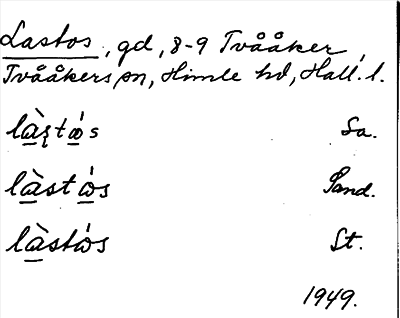 Lastos, gd, 8-9 Tvååker,
Tvååkers sn, Himle hd, Hall. l.
là̱s̨tώ̱s Sa.
là̱stώ̱s Sand.
là̱stώs St.
1949.